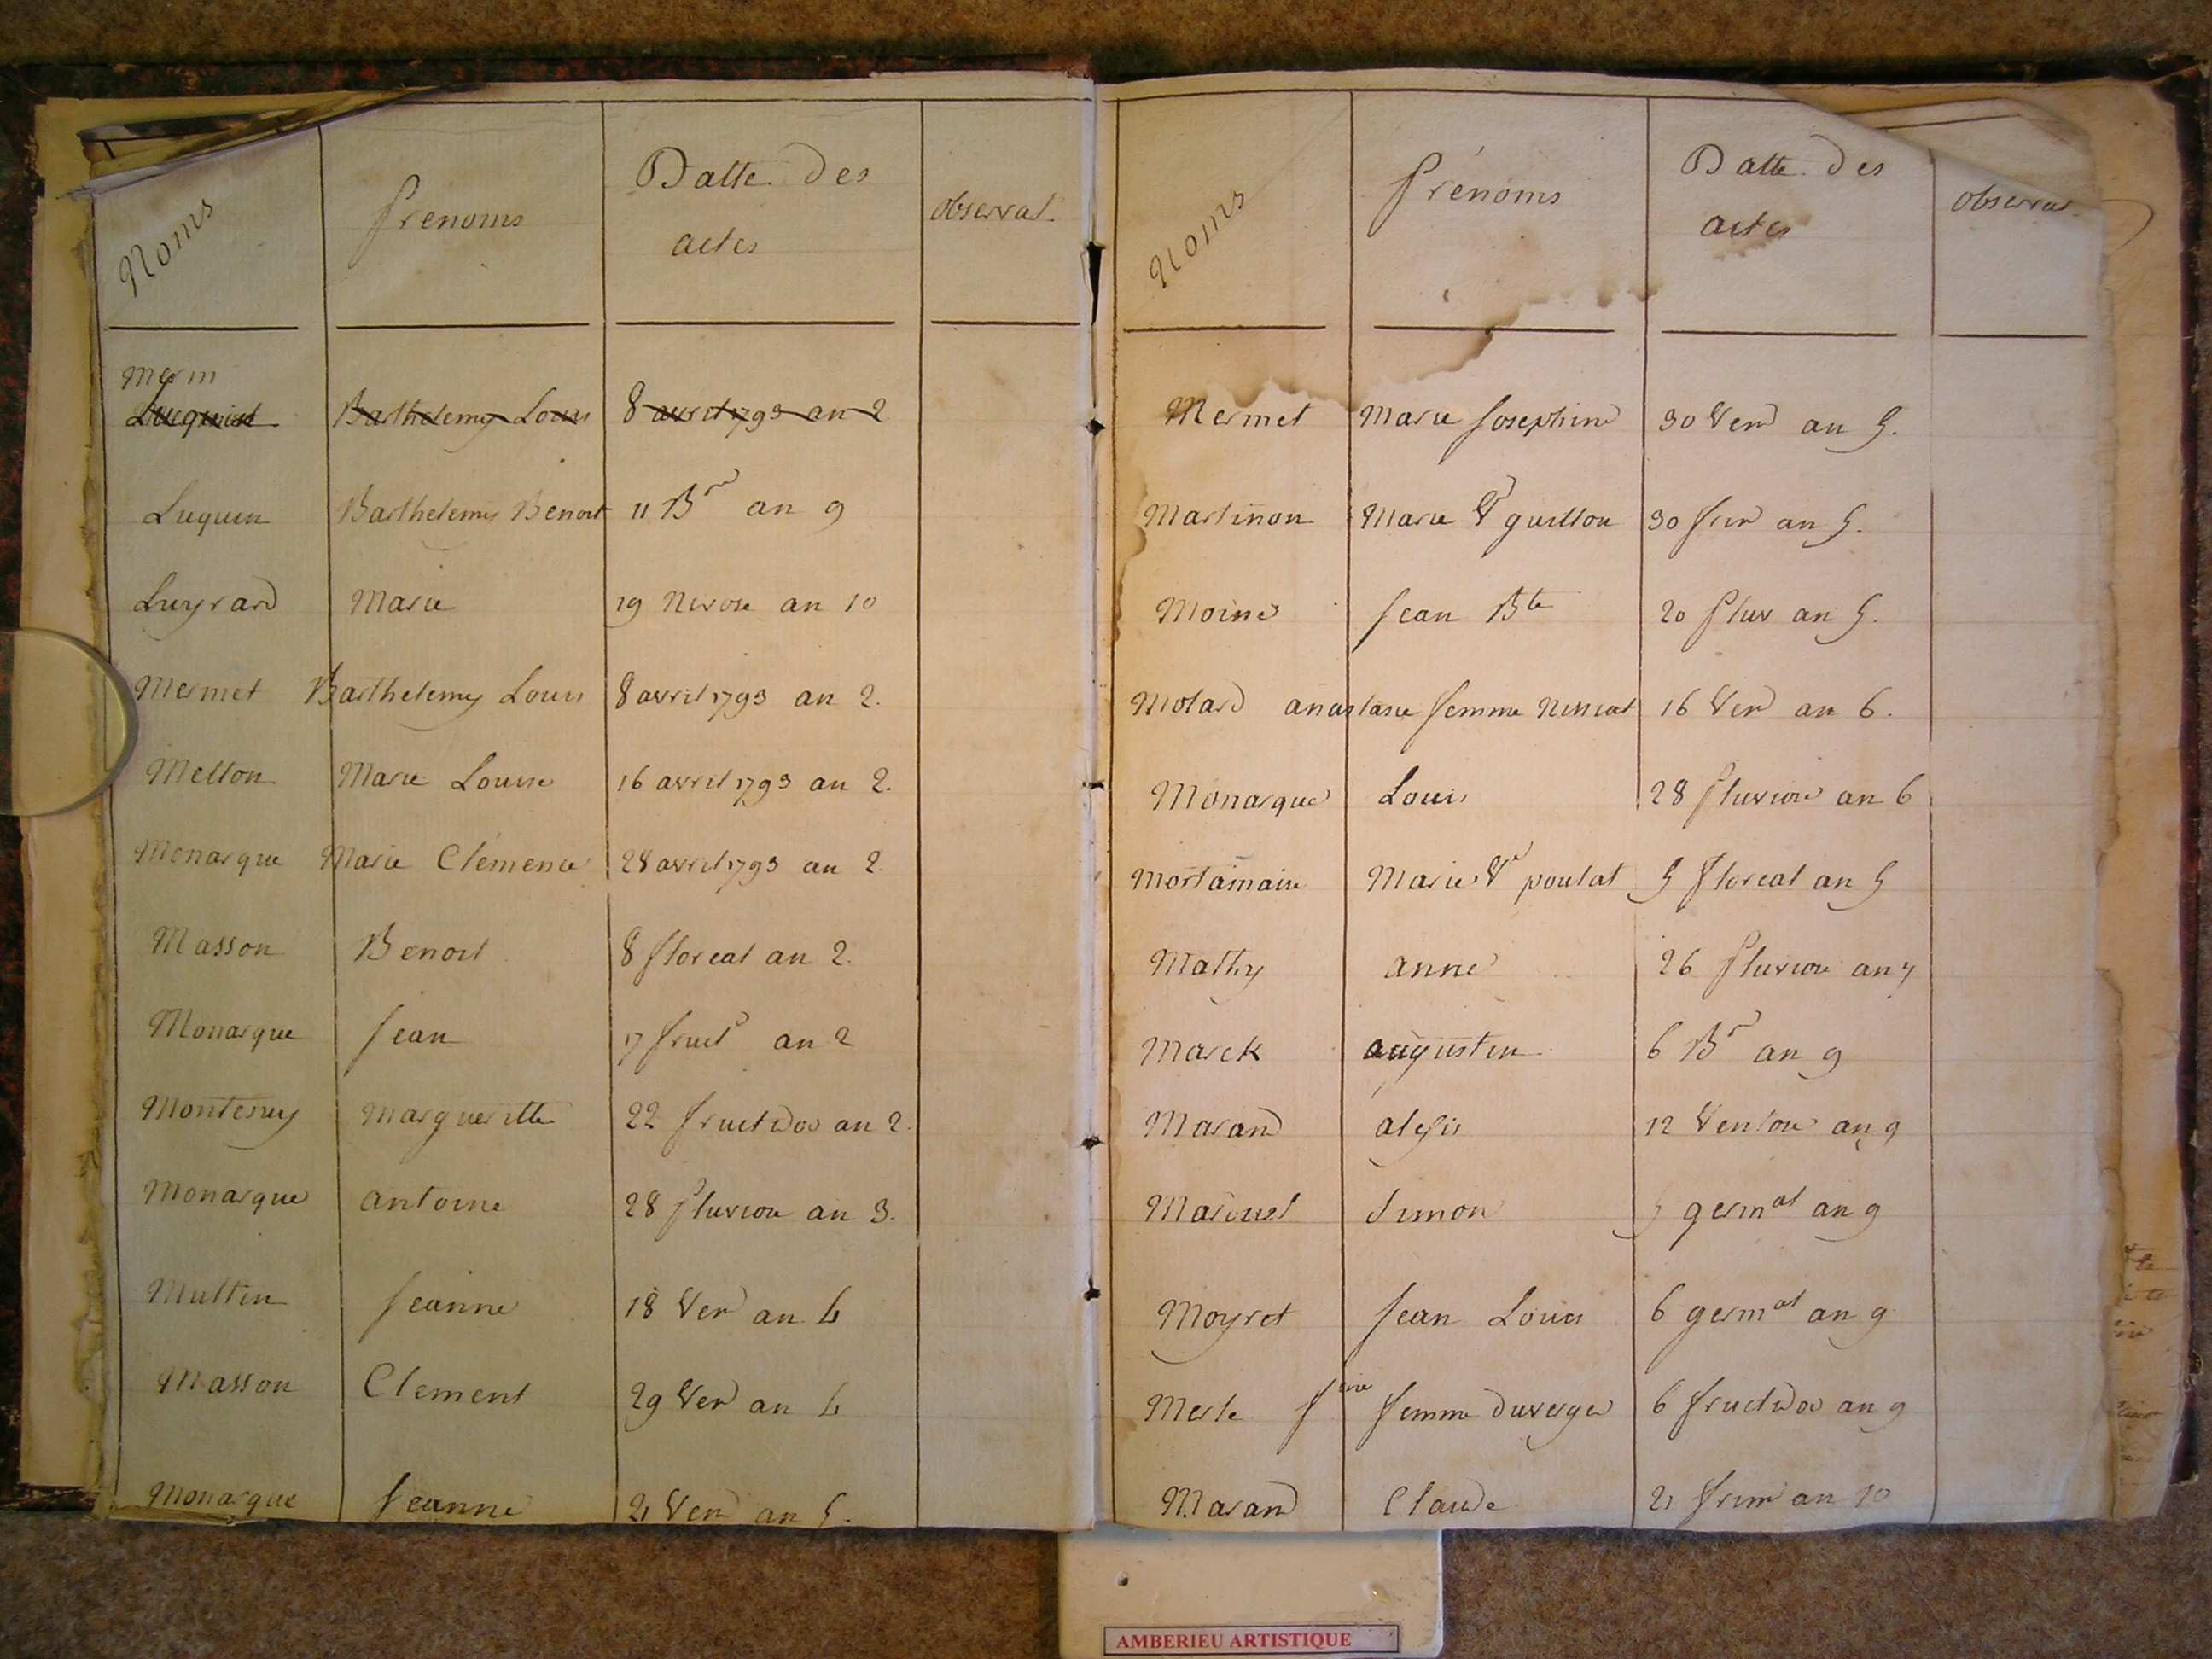 Noms Prenoms Datte des actes observat.
Mermet
Barthelemy Louis 8 avril 1793 an 2
Luquin Barthelemy Benoit 11 Bre an 9
Luyrard Marie 19 Nivose an 10
Mermet Barthelemy Louis 8 avril 1793 an 2.
Metton Marie Louise 16 avril 1793 an 2.
Monarque Marie Clémence 28 avril 1793 an 2.
Masson Benoit 8 floreal an 2.
Monarque Jean 17 fruct an 2
Montessuy Margueritte 22 fructidor an 2.
Monarque antoine 28 Pluviose an 3.
Multin Jeanne 18 Ven an 4
Masson Clement 29 Ven an 4
Monarque Jeanne 21 Ven an 5.
Noms Prénoms Datte des actes observat.
Mermet Marie Josephine 30 Vend an 5.
Martinon Marie Ve guillon 30 frim an 5.
Moine Jean Bte 20 Pluv an 5.
Molard anastasie femme 16 Ven an 6.
Monarque Louis 28 Pluviose an 6
Mortamaise Marie Ve poulat 5 floreal an 5
Mathy anne 26 Pluviose an 7
Marck augustin 6 Br an 9
Marand alexis 12 Ventose an 9
Simon 5 germal an 9
Moyret Jean Louis 6 germal an 9
Merle Jne femme duverger 6 fructidor an 9
Marand Claude 21 frim an 10
AMBERIEU ARTISTIQUE